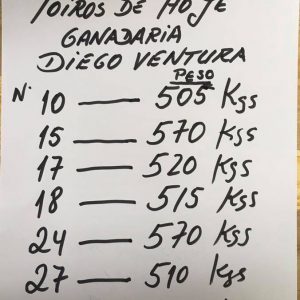 TOIROS DE HOJE
GANADARIA
DIEGO VENTURA
PESO
N. 10 — 505 Kgs
15 — 570 Kgs
17 — 520 Kgs
18 — 515 Kgs
24 — 570 Kgs
27 — 510 Kgs